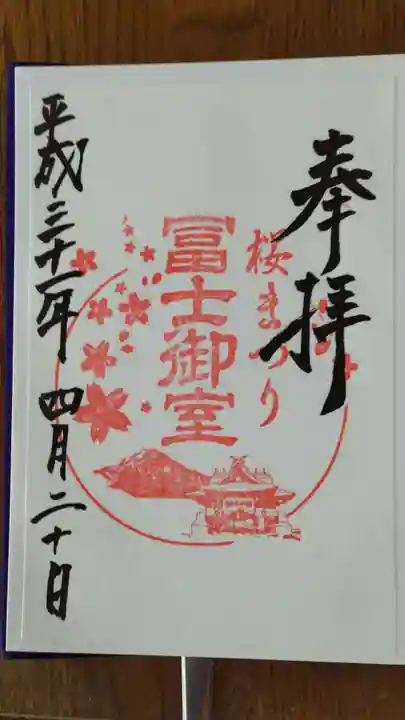 奉拝
桜まつり
冨士御室
平成三十一年四月二十日